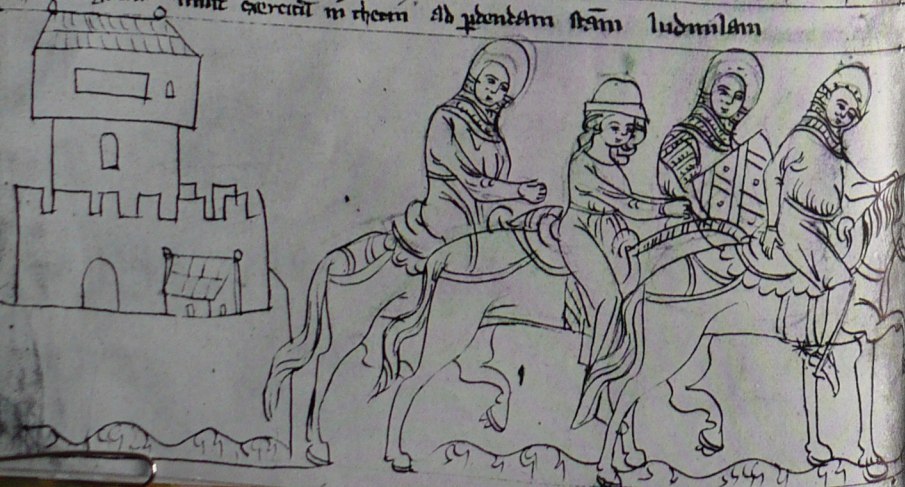 exercitū in thetin ad ꝑdendam sc̄am ludmilam